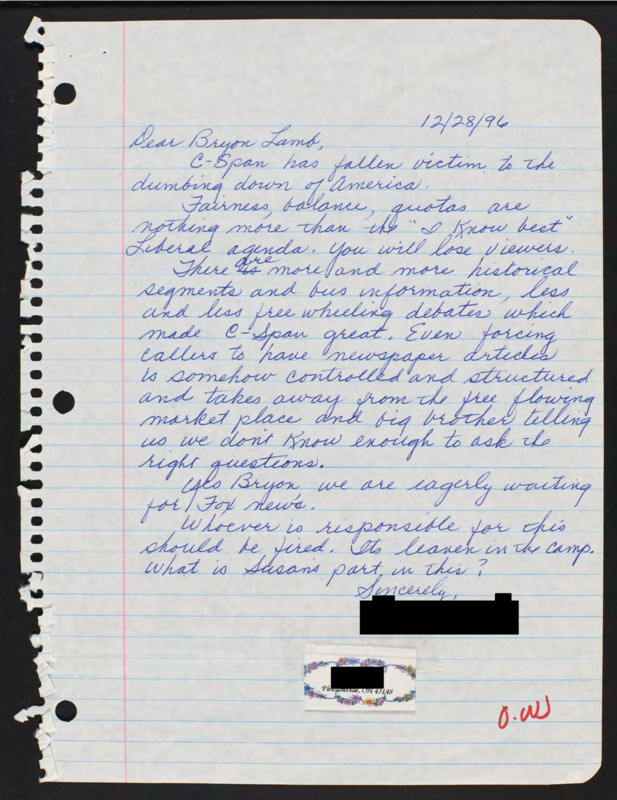 12/28/96
Dear Bryon Lamb,
C-Span has fallen victim to the
dumbing down of America.
Fairness, balance, quotas are
nothing more than the "I Know best"
Liberal agenda. You will lose viewers.
There are more and more historical
segments and bus information, less
and less free wheeling debates which
made C-Span great. Even forcing
callers to have newspaper articles
is somehow controlled and structured
and takes away from the free flowing
market place and big brother telling
us we don't know enough to ask the
right questions.
Yes Bryon we are eagerly waiting
for Fox news.
Whoever is responsible for this
should be fired. Its leaven in the camp.
What is Susans part in this?
Sincerely,
OH 43148
O.W